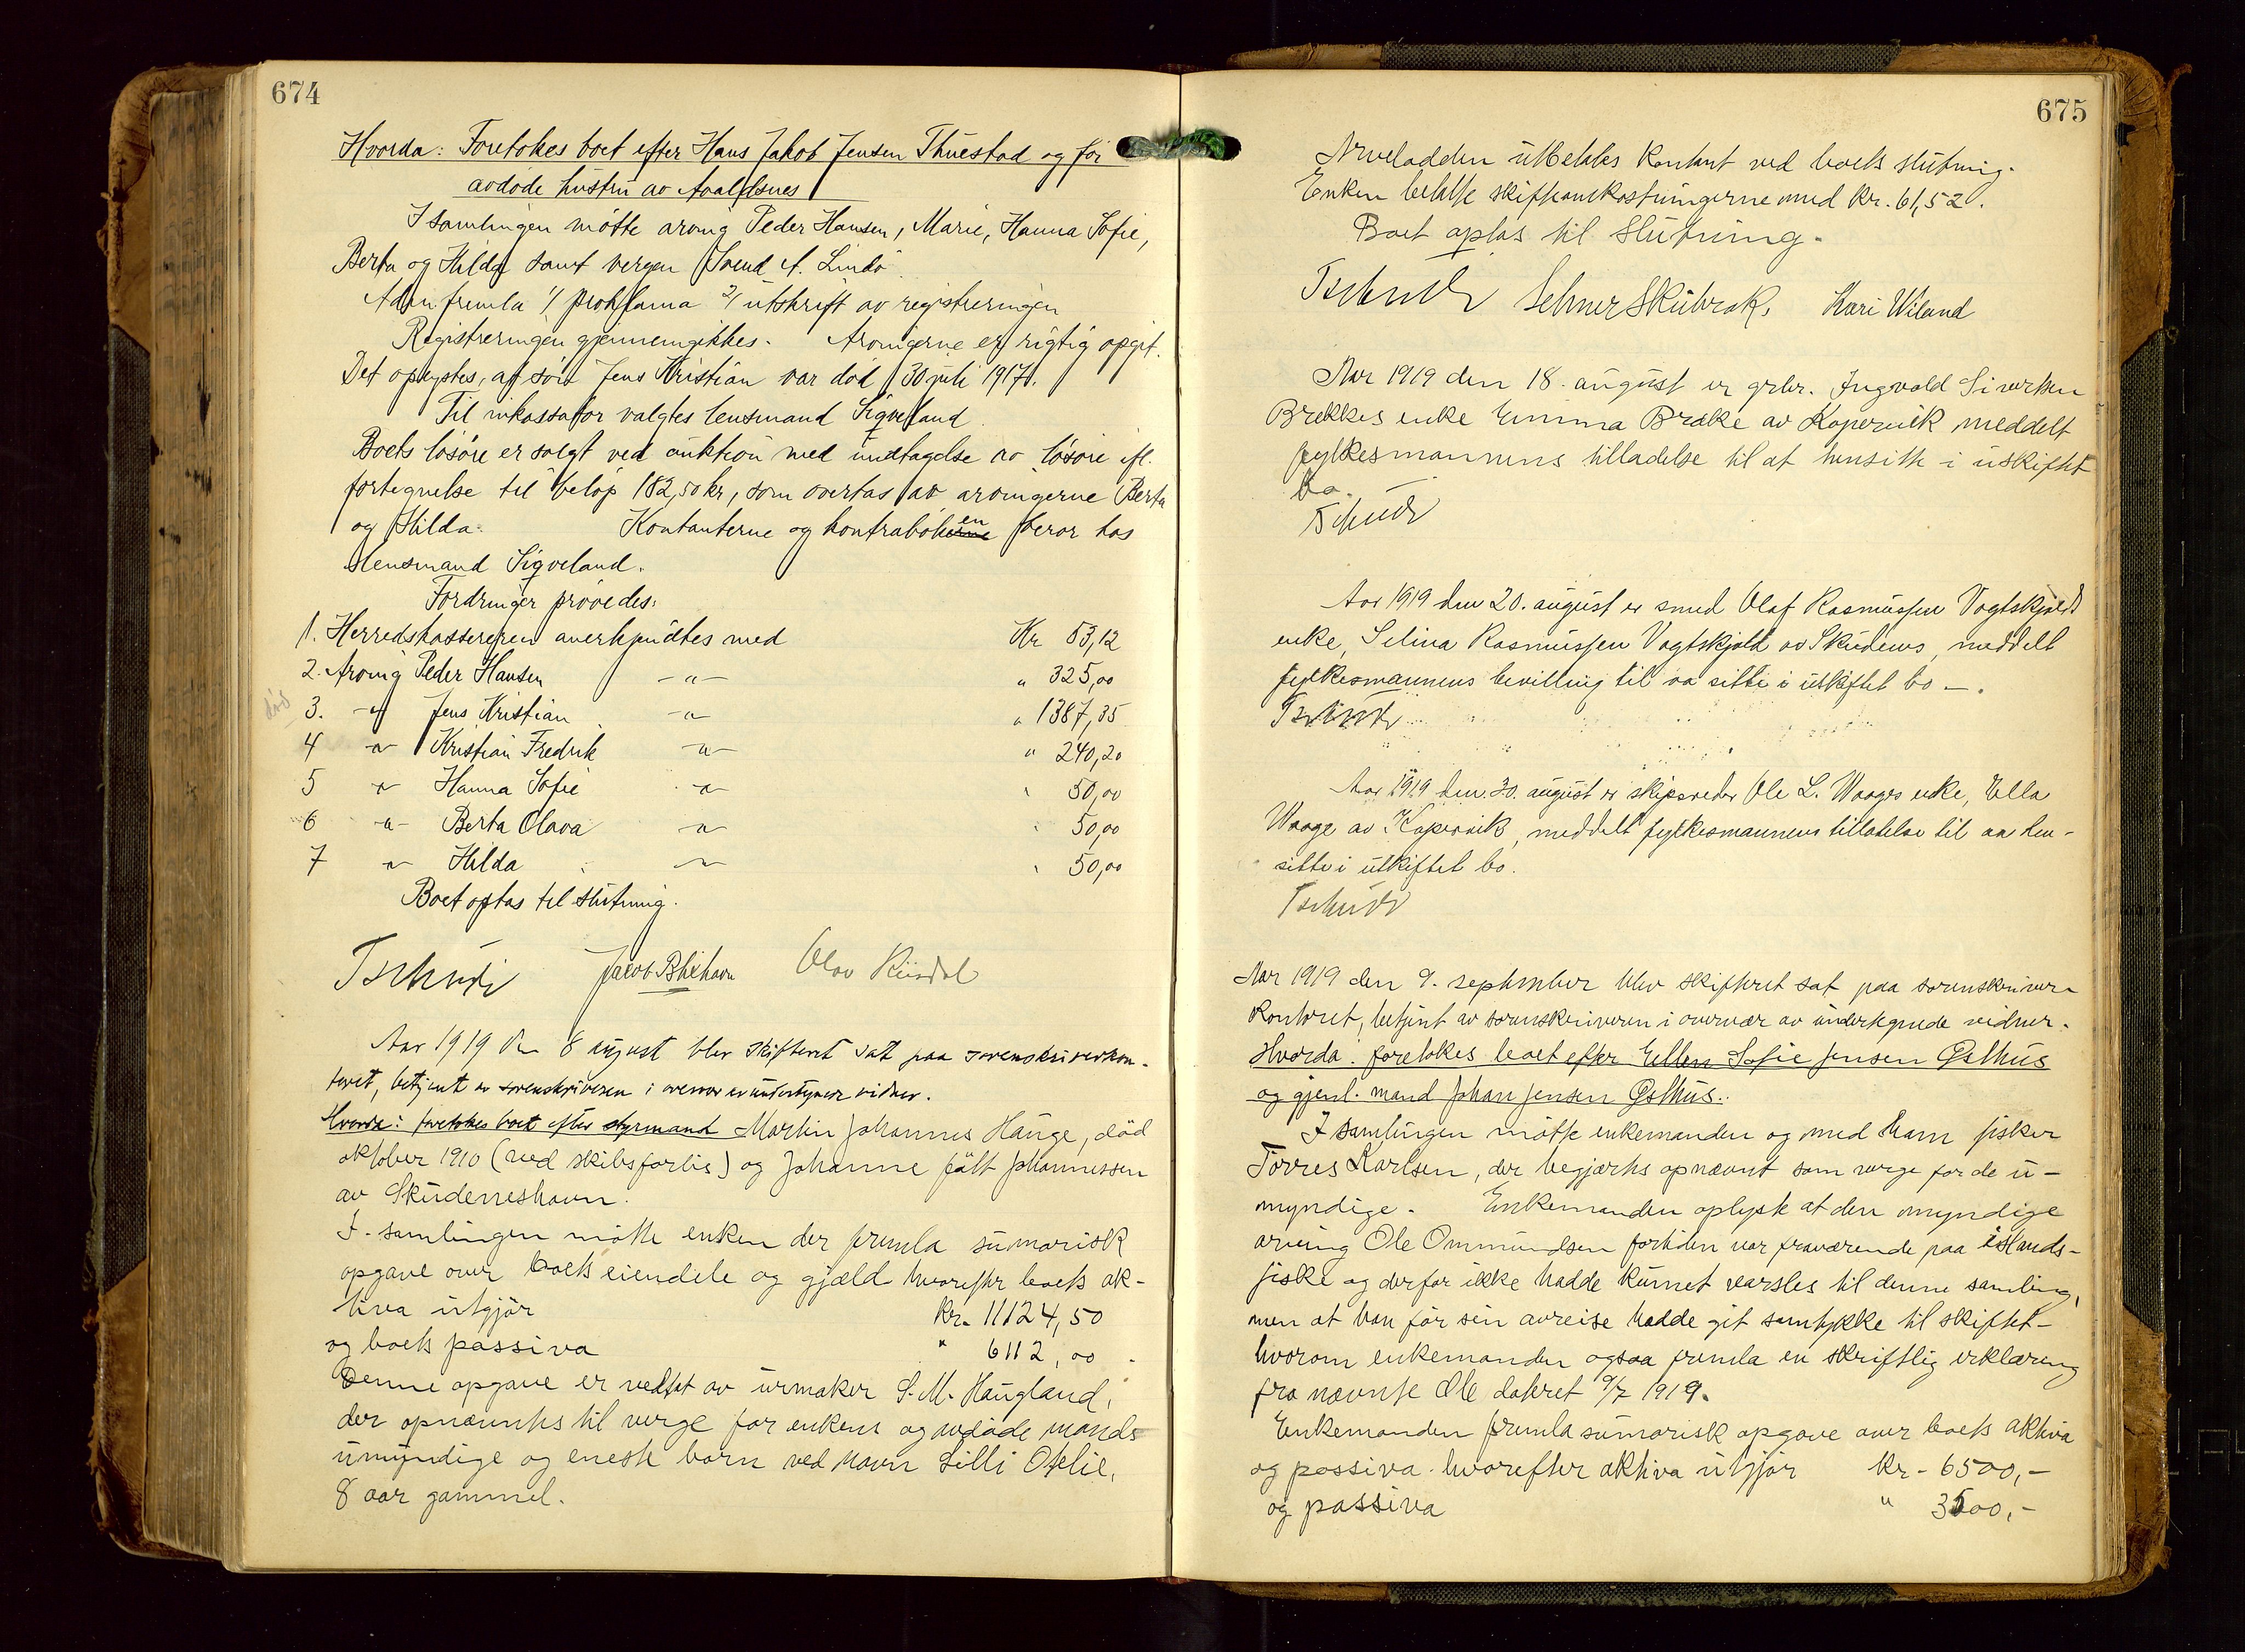 674
Hvorda: Foretokes boet efter Hans Jakob Jensen Thuestad og før
avdøde hustru av Avaldsnes
I samlingen møtte arving Peder Hansen, Marie, Hanna Sofie,
Berta og Hilda samt vergen Svend A. Lindø.
Adm. fremla 1/ proklama 2/ utskrift av registreringen
Registreringen gjennemgikkes. Arvingerne er rigtig opgit.
Det oplystes, at søn Jens Kristian var død 30 juli 1917.
Til inkassator valgtes lensmand Sigveland.
Boets løsøre er solgt ved auktion med undtagelse av løsøre ifl.
fortegnelse til beløp 182,50 kr, som overtas av arvingerne Berta
og Hilda. Kontanterne og kontrabøkerne en beror hos
lensmand Sigveland.
Fordringer prøvedes:
1. Herredskassereren anerkjendtes med Kr 53,12
2. Arving Peder Hansen -"- " 325,00
død 3. -"- Jens Kristian -"- " 1387,35
4 -"- Kristian Fredrik -"- " 240,20
5 -"- Hanna Sofie -"- " 50,00
6 -"- Berta Olava -"- " 50,00
7 -"- Hilda -"- " 50,00
Boet optas til slutning.
Tschudi Jacob Blikhavn Olav
Aar 1919 den 8 august blev skifteret sat paa sorenskriverkon-
toret, betjent av sorenskriveren i overvær av undertegnede vidner.
Hvorda: foretokes boet efter styrmand Martin Johannes Hauge, død
oktober 1910 (ved skibsforlis) og Johanne født Johannessen
av Skudeneshavn.
I samlingen møtte enken der fremla sumarisk
opgave over boets eiendele og gjæld hvorefter boets ak-
tiva utgjør Kr. 11124,50
og boets passiva " 6112,00.
Denne opgave er vedtat av urmaker S. M. Haugland,
der opnævntes til verge for enkens og avdøde mands
umyndige og eneste barn ved navn Lilli Otelie,
8 aar gammel.
675
Arvelodden utbetales kontant ved boets slutning.
Enken betalte skifteomkostningerne med kr. 61,52.
Boet optas til slutning.
Tschudi Selmer Skibrak, Kari Wiland
Aar 1919 den 18. august er grbr. Ingvald Sivertsen
Brekkes enke Emma Brække av Kopervik meddelt
fylkesmannens tilladelse til at hensitte i uskiftet
bo.
Tschudi
Aar 1919 den 20. august er smed Olaf Rasmussen Vogtskjolds
enke, Selina Rasmussen Vogtskjold av Skudenes, meddelt
fylkesmannens bevilling til aa sitte i uskiftet bo -.
Tschudi
Aar 1919 den 30. august er skipsreder Ole L. Waages enke, Ella
Waage av Kopervik, meddelt fylkesmannens tillatelse til aa hen-
sitte i uskiftet bo.
Tschudi
Aar 1919 den 9. september blev skifteret sat paa sorenskriver-
kontoret, betjent av sorenskriveren i overvær av undertegnede vidner.
Hvorda: foretokes boet efter Ellen Sofie Jensen Østhus
og gjenl. mand Johan Jensen Østhus.
I samlingen møtte enkemanden og med ham fisker
Torres Karlsen, der begjærtes opnævnt som verge for de u-
myndige. Enkemanden oplyste at den myndige
arving Ole Ommundsen fortiden var fraværende paa islands-
fiske og derfor ikke hadde kunnet varsles til denne samling,
men at han før sin avreise hadde git samtykke til skiftet -
hvorom enkemanden ogsaa fremla en skriftlig erklæring
fra nævnte Ole datert 9/7 1919.
Enkemanden fremla sumarisk opgave over boets aktiva
og passiva hvorefter aktiva utgjør kr. 6500,-
og passiva " 3500,-